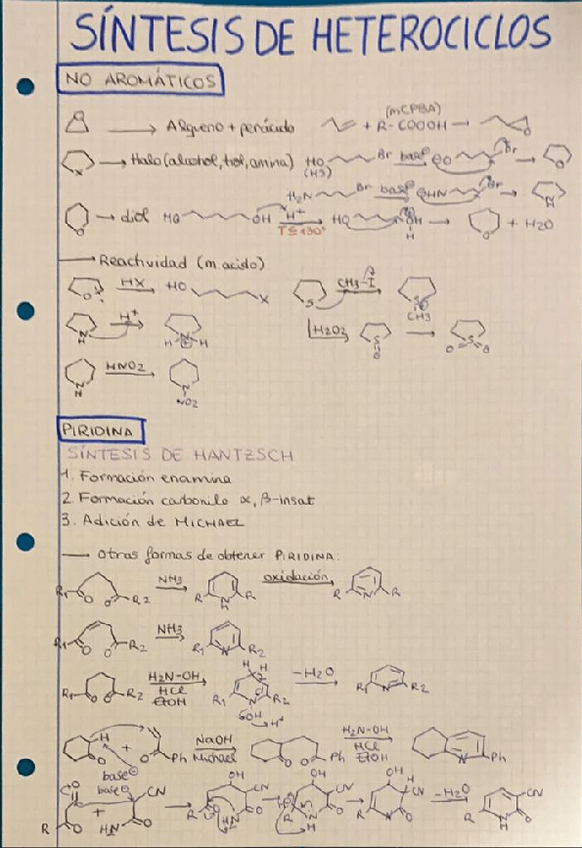 SÍNTESIS DE HETEROCICLOS
NO AROMÁTICOS
O → Alqueno + perácido + R-COOOH (mCPBA) → O
X → Halo (alcohol, tiol, amina) HO (HS) Br base⊖ ⊖O Br → O
H2N Br base⊖ ⊖HN Br → N H
O → diol HO OH H+ HO OH H → O + H2O
→ Reactividad (m. acido)
O HX HO X S CH3-I S⊕ CH3
N H H+ H N⊕ H H2O2 S O → S O O
N HNO2 N NO2
PIRIDINA
SÍNTESIS DE HANTZSCH
1. Formación enamina
2. Formación carbonilo α, β-insat
3. Adición de MICHAEL
→ Otras formas de obtener PIRIDINA:
R1 O O R2 NH3 R N H R oxidación R N R
R1 O O R2 NH3 R1 N R2
R1 O O R2 H2N-OH HCl EtOH R1 N R2 H H -H2O R1 N R2
H O + O Ph NaOH Michael O O Ph H2N-OH HCl EtOH N Ph
base⊖
base⊖ R O + CN H2N O → OH CN → OH CN → OH H CN R N O -H2O R N H O CN